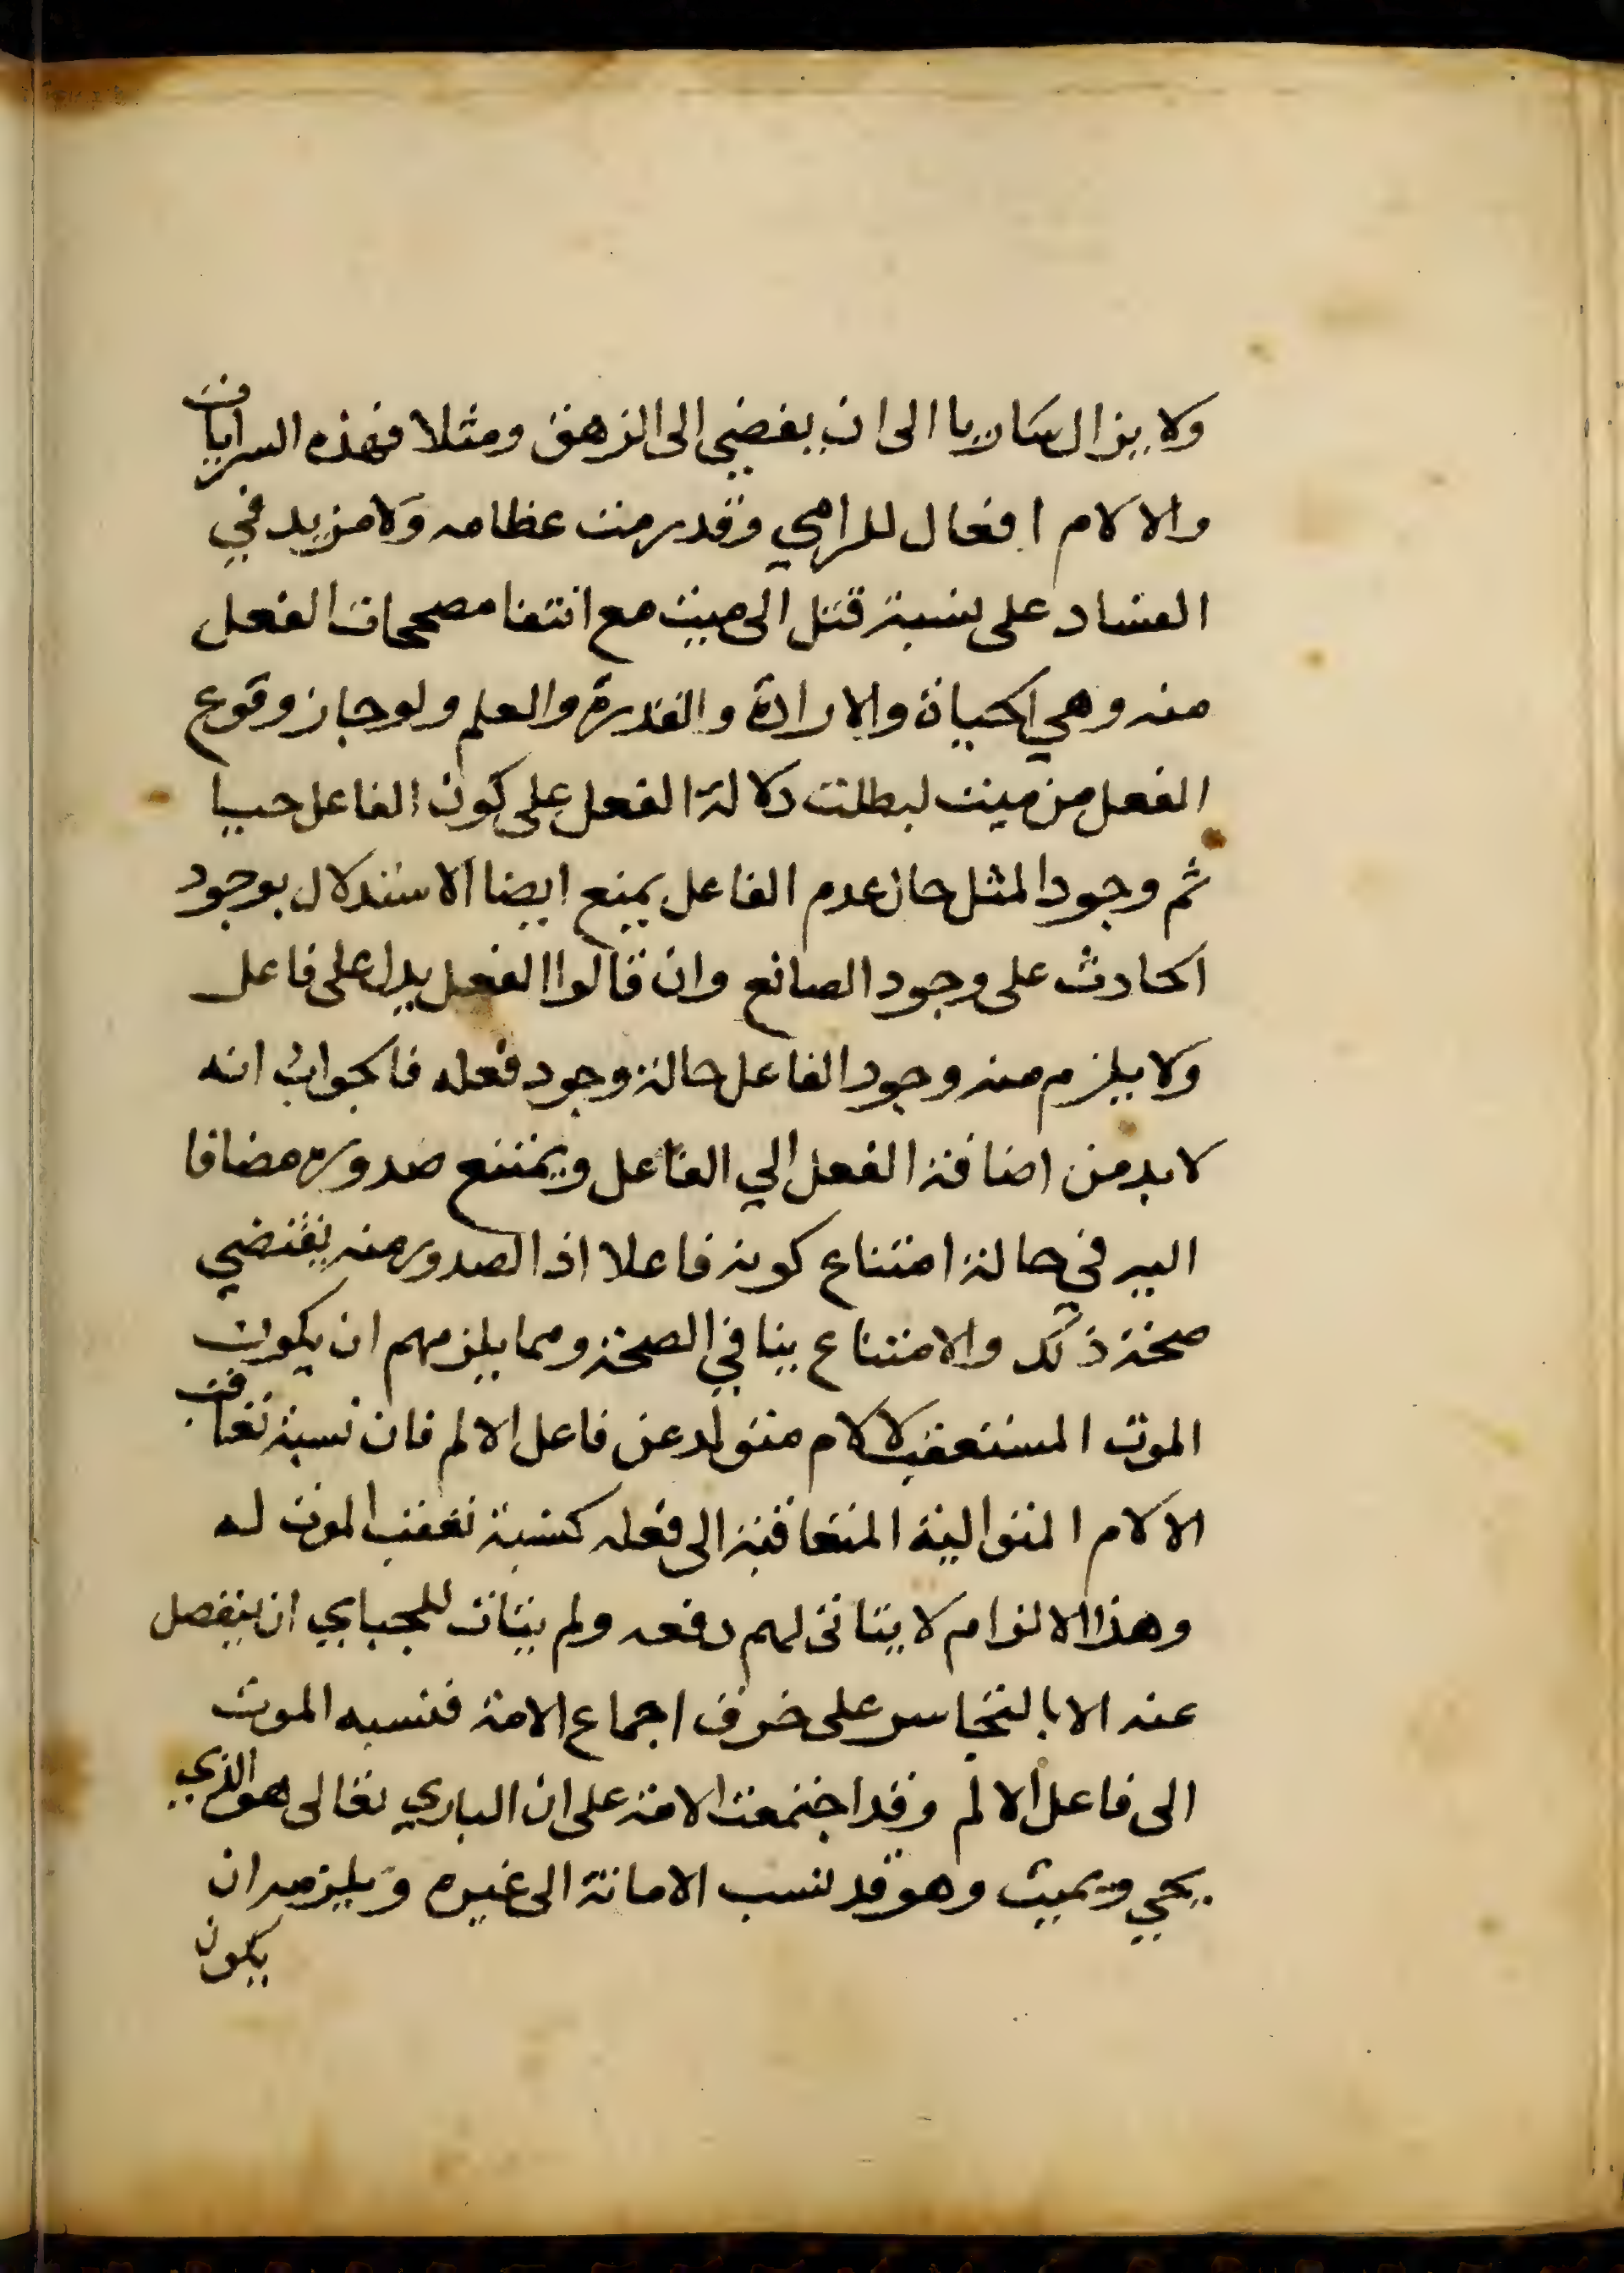 ولا يزال ساريا الى ان يفضي الى الزهق ومثلا فهذه السرايات
والالام افعال للرامي وقد رمت عظامه ولا مزيد في
الفساد على نسبة قتل الى ميت مع انتفا مصححات الفعل
منه وهي الحياة والارادة والقدرة والعلم ولو جاز وقوع
الفعل من ميت لبطلت دلالة الفعل على كون الفاعل حيا
ثم وجود المثل حال عدم الفاعل يمنع ايضا الاستدلال بوجود
الحادث على وجود الصانع وان قالوا الفعل يدل على فاعل
ولا يلزم منه وجود الفاعل حالة وجود فعله فالجواب انه
لا بد من اضافة الفعل الي الفاعل ويمتنع صدوره مضافا
اليه في حالة امتناع كونه فاعلا اذ الصدور منه يقتضي
صحة ذلك والامتناع ينافي الصحة ومما يلزمهم ان يكون
الموت المستعقب لالام متولد عن فاعل الالم فان نسبة تعاقب
الالام المتوالية المتعاقبة الى فعله كنسبة تعقب الموت له
وهذا الالزام لا يتاتى لهم دفعه ولم يتات للجباي ان ينفصل
عنه الا بالتجاسر على خرق اجماع الامة فنسبه الموت
الى فاعل الالم وقد اجتمعت الامة على ان الباري تعالى هو الذي
يحيي ويميت وهو قد نسب الاماتة الى غيره ويلزمه ان
يكون